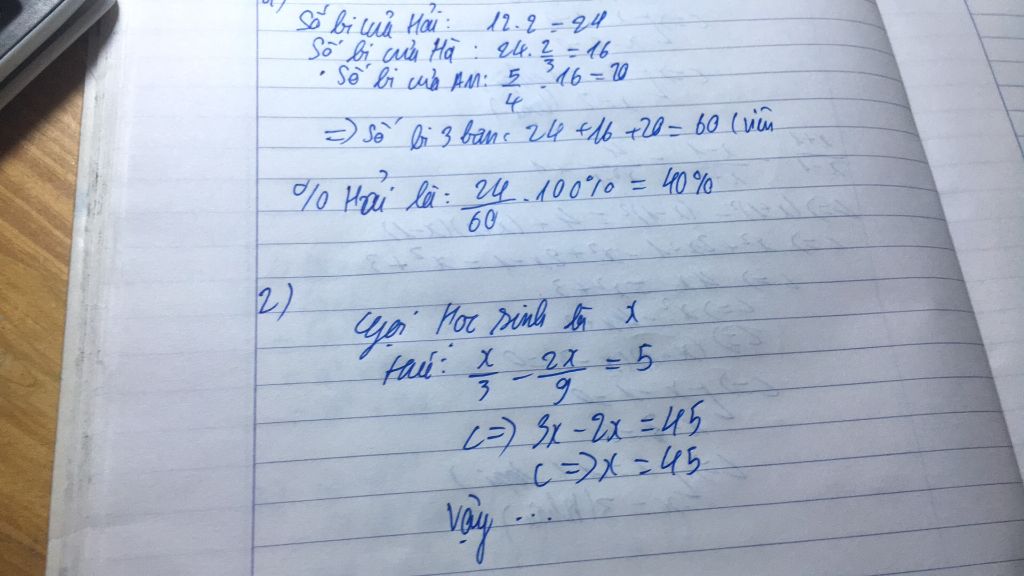 Số bi của Hải: 12.2 = 24
Số bi của Hà: 24. 2/3 = 16
• Số bi của AM: 5/4 . 16 = 20
=> Số bi 3 bạn: 24 + 16 + 20 = 60 (viên
% Hải là: 24/60 . 100% = 40%
2)
Gọi Học sinh là x
x/3 - 2x/9 = 5
<=> 3x - 2x = 45
<=> x = 45
Vậy ...